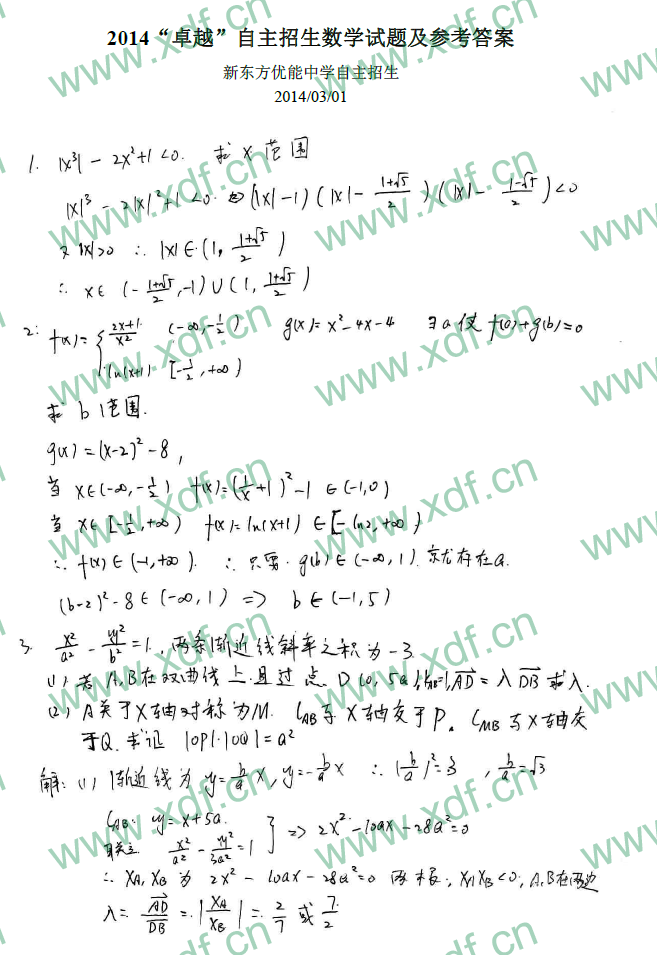 2014“卓越”自主招生数学试题及参考答案
新东方优能中学自主招生
2014/03/01
1. |x³| - 2x²+1<0. 求 x 范围
|x|³ - 2|x|²+1<0 ⇔ (|x|-1)(|x|- (1+√5)/2)(|x|- (1-√5)/2)<0
又 |x|>0 ∴ |x|∈(1, (1+√5)/2)
∴ x∈(-(1+√5)/2, -1)∪(1, (1+√5)/2)
2. f(x)={ (2x+1)/x² (-∞,-1/2) g(x)=x²-4x-4 ∃a使 f(a)+g(b)=0
ln(x+1) [-1/2,+∞)
求 b 范围.
g(x)=(x-2)²-8,
当 x∈(-∞,-1/2) f(x)=(1/x+1)²-1 ∈(-1,0)
当 x∈[-1/2,+∞) f(x)=ln(x+1)∈[-ln2,+∞)
∴ f(x)∈(-1,+∞). ∴ 只需 g(b)∈(-∞,1). 就存在a.
(b-2)²-8∈(-∞,1) => b∈(-1,5)
3. x²/a² - y²/b²=1, 两条渐近线斜率之积为-3
(1) 若 A,B在双曲线上.且过点 D(0,5a), k_AB=1, AD=λDB 求λ.
(2) A关于X轴对称为M. l_AB与X轴交于P。l_MB与X轴交
于Q. 求证 |OP|·|OQ|=a²
解: (1) 渐近线为 y=b/a x, y=-b/a x ∴ (b/a)²=3, b/a=√3
l_AB: y=x+5a.
联立 x²/a² - y²/3a²=1 } => 2x²-10ax-28a²=0
∴ x_A, x_B 为 2x²-10ax-28a²=0 两根, x_A x_B<0, A,B在两边
λ= AD/DB = |x_A/x_B| = 2/7 或 7/2
www.xdf.cn
www.xdf.cn
www.xdf.cn
www.xdf.cn
www.xdf.cn
www.xdf.cn